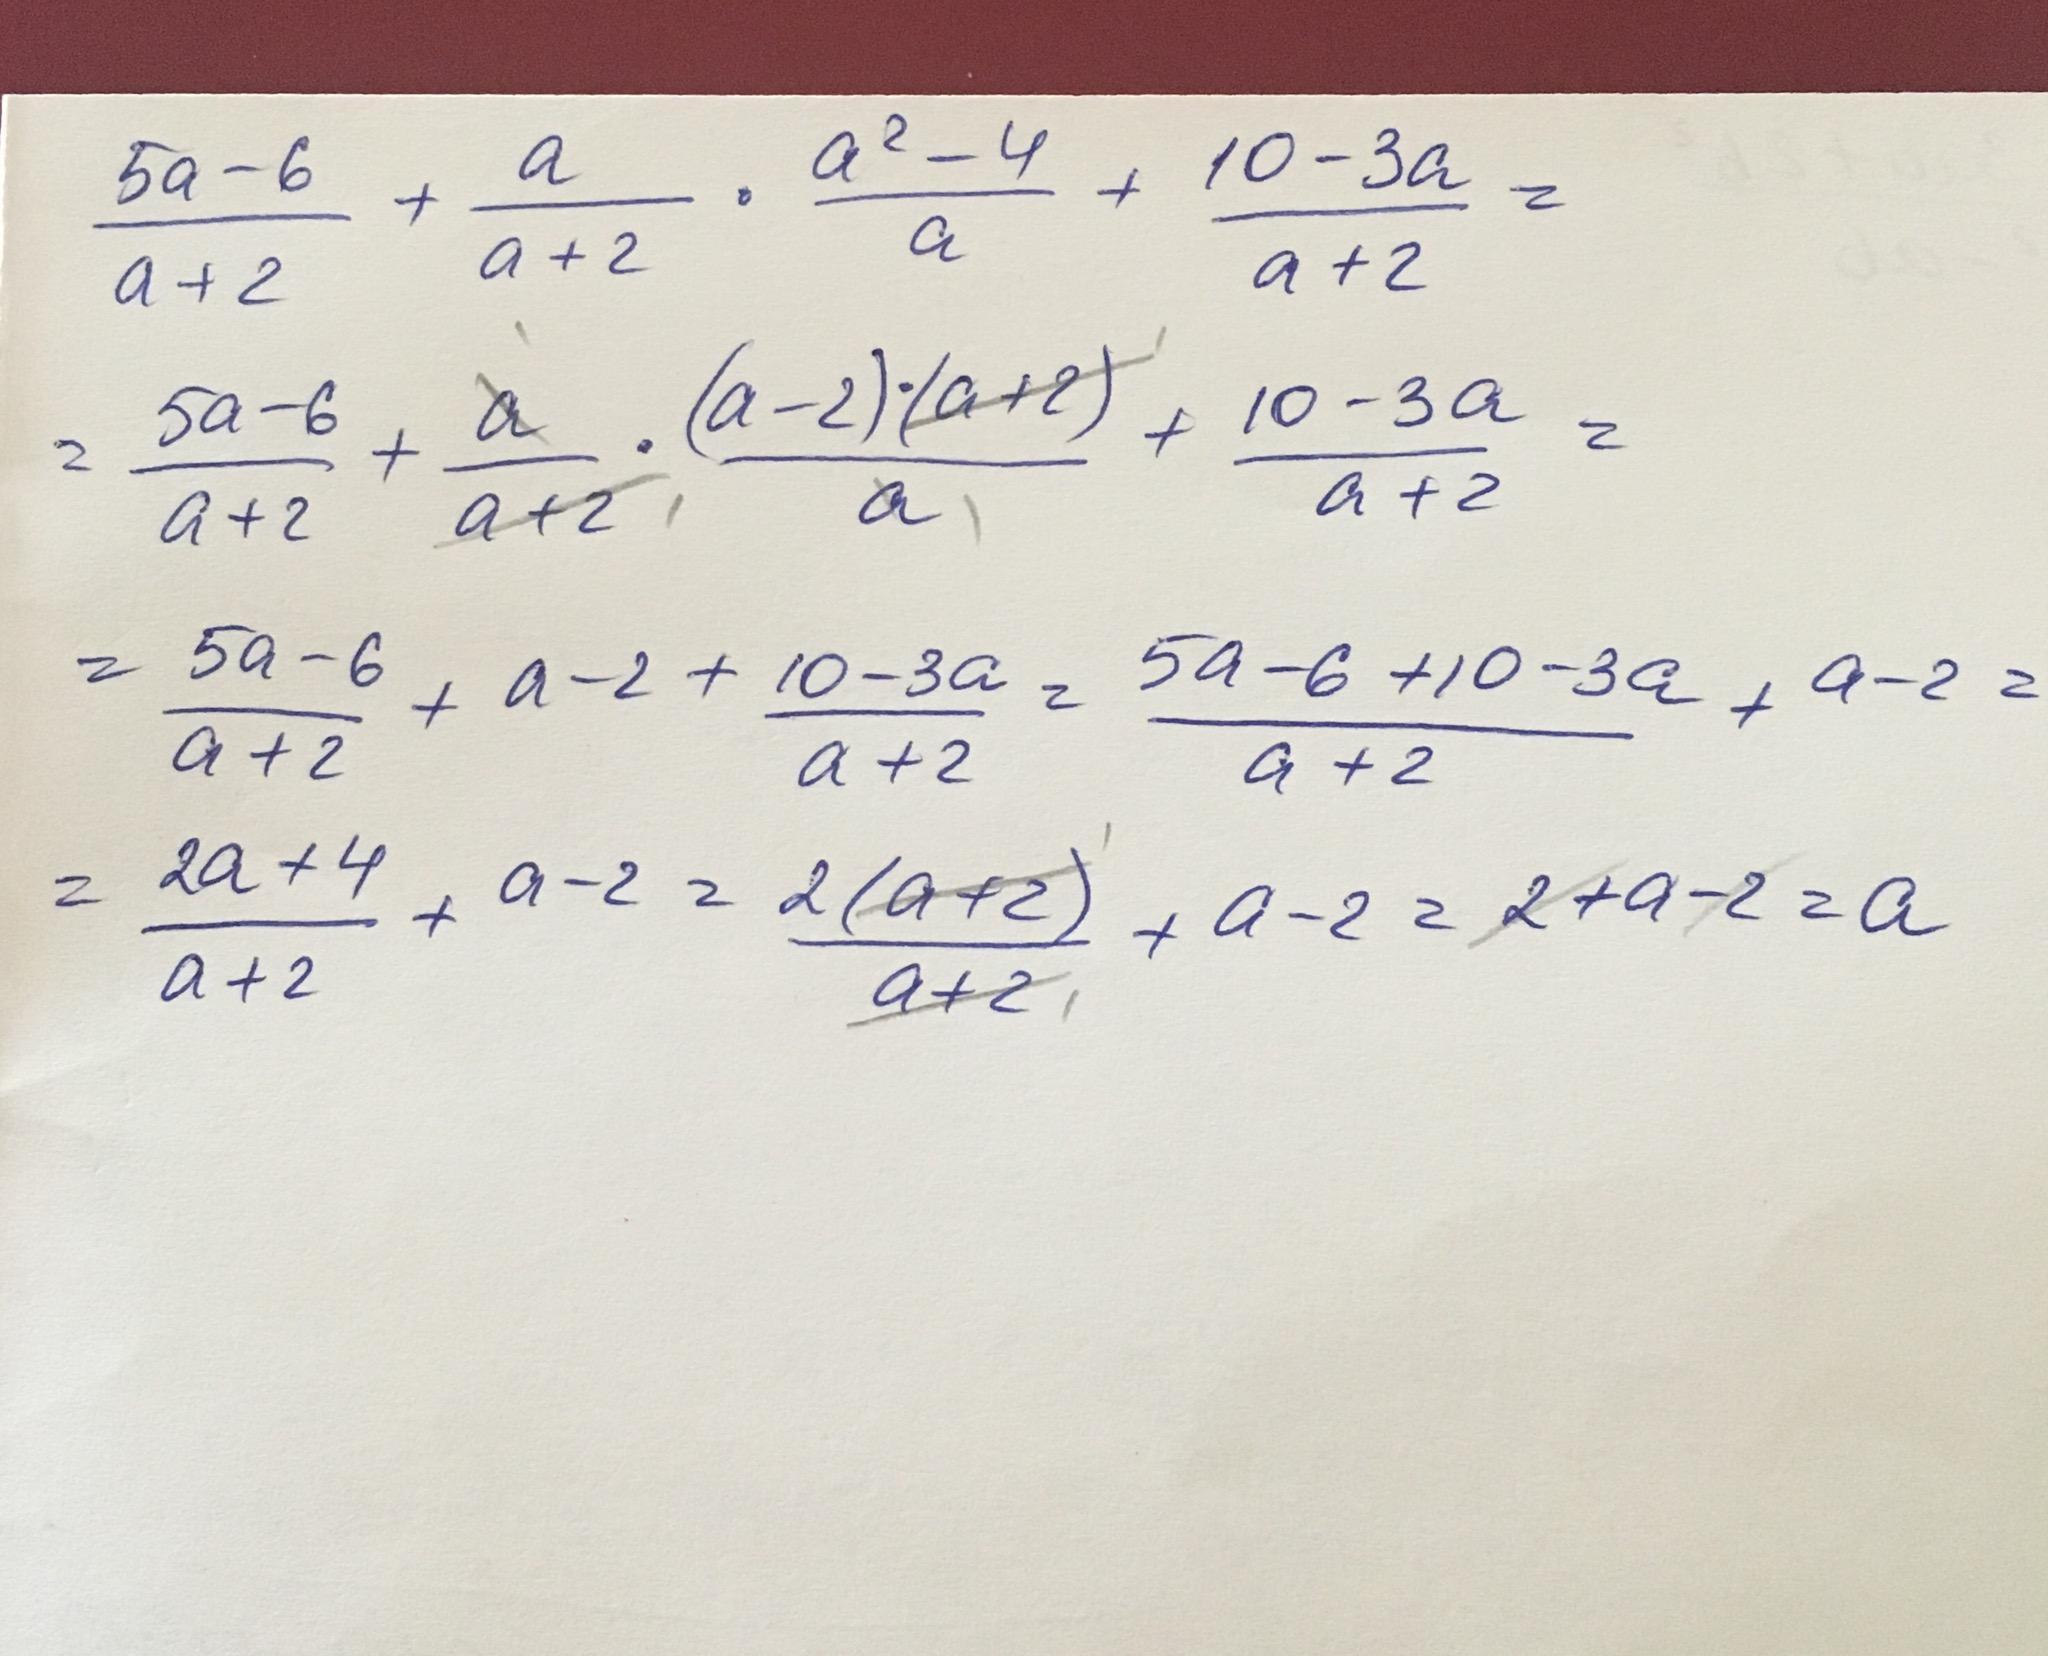 (5a-6)/(a+2) + a/(a+2) · (a²-4)/a + (10-3a)/(a+2) =
= (5a-6)/(a+2) + a/(a+2) · ((a-2)·(a+2))/a + (10-3a)/(a+2) =
= (5a-6)/(a+2) + a-2 + (10-3a)/(a+2) = (5a-6+10-3a)/(a+2) + a-2 =
= (2a+4)/(a+2) + a-2 = 2(a+2)/(a+2) + a-2 = 2+a-2 = a